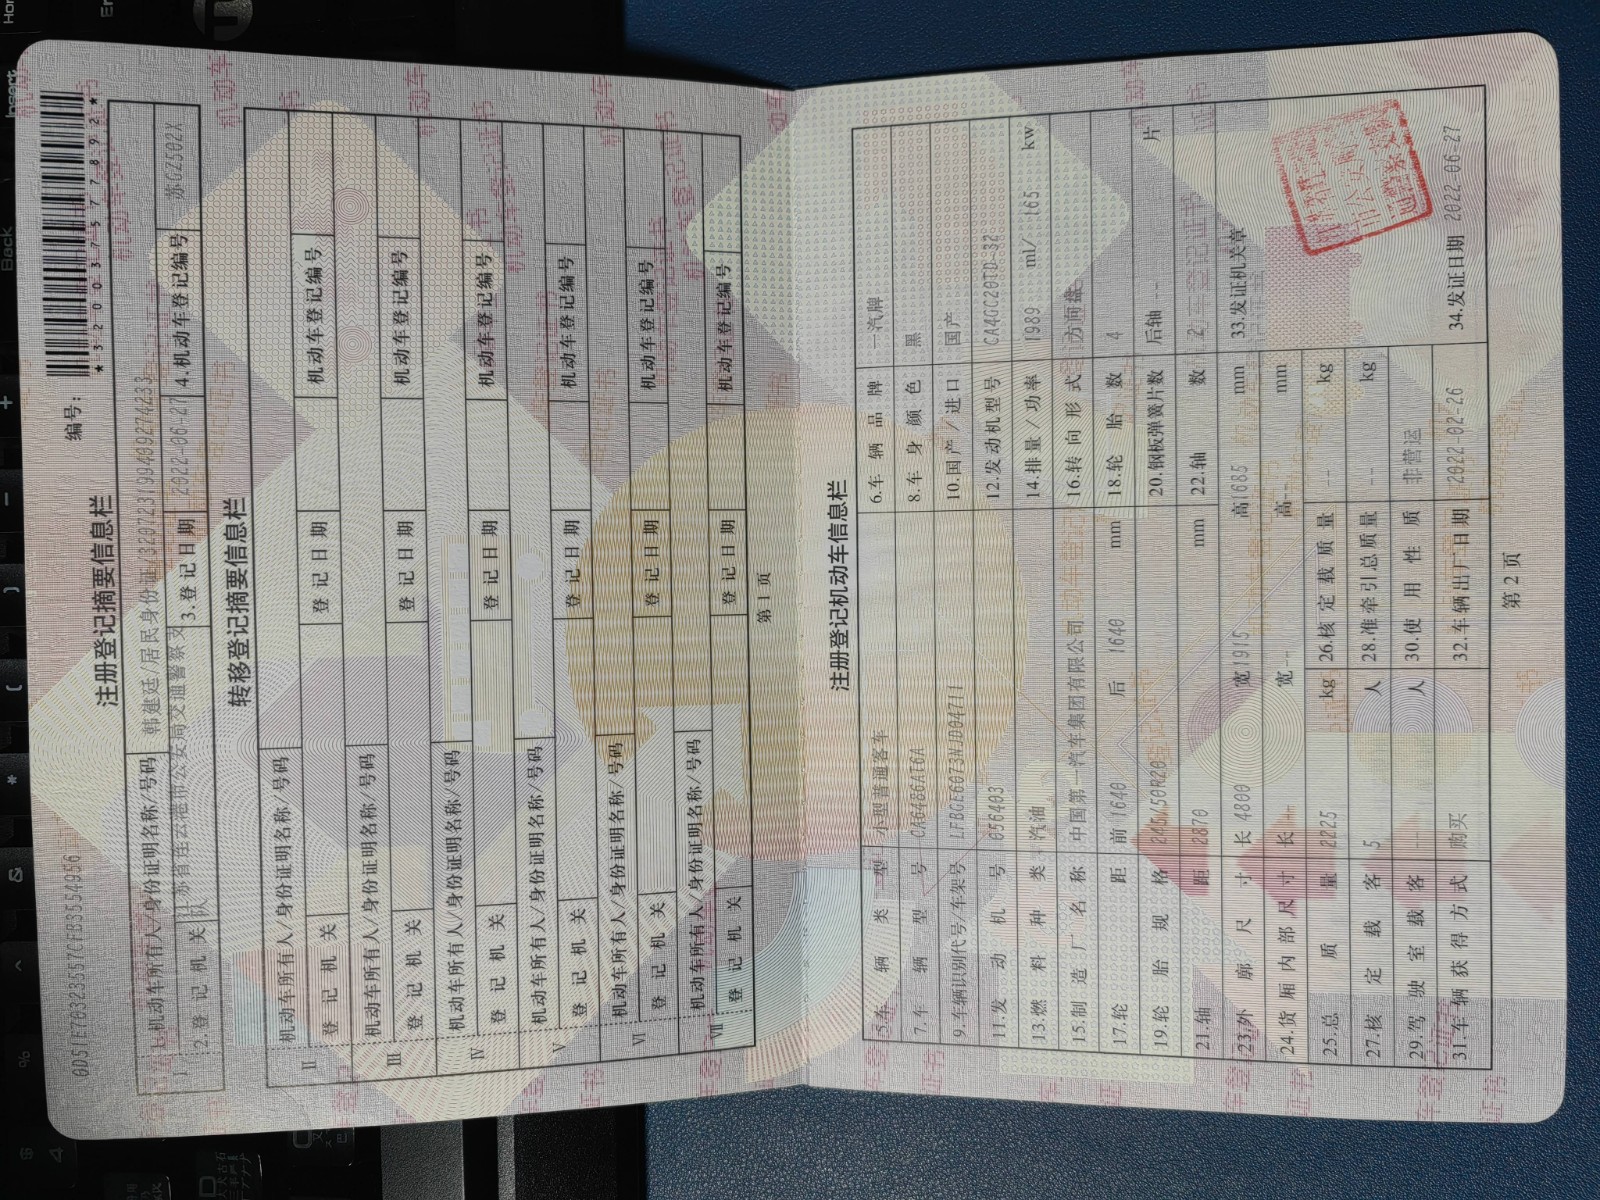 编号：
*320037577892*
注册登记摘要信息栏
1.机动车所有人/身份证明名称/号码 韩建廷/居民身份证/320723199409274233
2.登记机关 江苏省连云港市公安局交通警察支队 3.登记日期 2022-06-27 4.机动车登记编号 苏GZ502X
转移登记摘要信息栏
Ⅱ 机动车所有人/身份证明名称/号码
登记机关 登记日期 机动车登记编号
Ⅲ 机动车所有人/身份证明名称/号码
登记机关 登记日期 机动车登记编号
Ⅳ 机动车所有人/身份证明名称/号码
登记机关 登记日期 机动车登记编号
Ⅴ 机动车所有人/身份证明名称/号码
登记机关 登记日期 机动车登记编号
Ⅵ 机动车所有人/身份证明名称/号码
登记机关 登记日期 机动车登记编号
Ⅶ 机动车所有人/身份证明名称/号码
登记机关 登记日期 机动车登记编号
第 1 页
注册登记机动车信息栏
5.车辆类型 小型普通客车 6.车辆品牌 一汽牌
7.车辆型号 CA6486AT6A 8.车身颜色 黑
9.车辆识别代号/车架号 LFBGE6073NJD04711 10.国产/进口 国产
11.发动机号 056403 12.发动机型号 CA4GC20TD-32
13.燃料种类 汽油 14.排量/功率 1989 ml/ 165 kw
15.制造厂名称 中国第一汽车集团有限公司 16.转向形式 方向盘
17.轮距 前 1640 后 1640 mm 18.轮胎数 4
19.轮胎规格 245/50R20 20.钢板弹簧片数 后轴 -- 片
21.轴距 2870 mm 22.轴数 2
23.外廓尺寸 长 4800 宽 1915 高 1685 mm 33.发证机关章
24.货厢内部尺寸 长 -- 宽 -- 高 -- mm
25.总质量 2225 kg 26.核定载质量 -- kg
27.核定载客 5 人 28.准牵引总质量 -- kg
29.驾驶室载客 -- 人 30.使用性质 非营运
31.车辆获得方式 购买 32.车辆出厂日期 2022-02-26 34.发证日期 2022-06-27
第 2 页